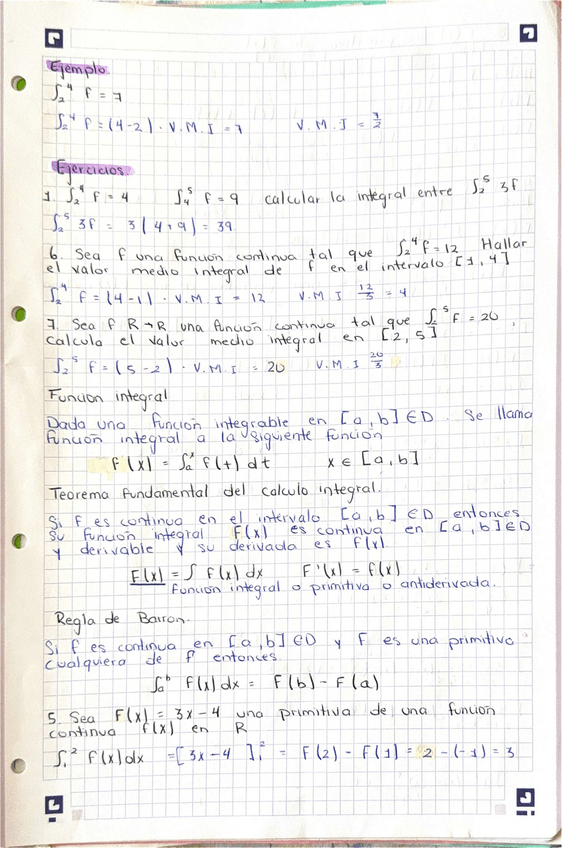 Ejemplo
∫₂⁴ f = 7
∫₂⁴ f = (4-2) · V.M.I = 7 V.M.I = 7/2
Ejercicios.
1. ∫₂⁴ f = 4 ∫₄⁵ f = 9 calcular la integral entre ∫₂⁵ 3f
∫₂⁵ 3f = 3(4+9) = 39
6. Sea f una función continua tal que ∫₂⁴ f = 12 Hallar
el valor medio integral de f en el intervalo [1,4]
∫₂⁴ f = (4-1) · V.M.I = 12 V.M.I 12/3 = 4
7. Sea f R→R una función continua tal que ∫₂⁵ f = 20,
calcula el valor medio integral en [2,5]
∫₂⁵ f = (5-2) · V.M.I = 20 V.M.I 20/3
Función integral
Dada una función integrable en [a,b] ∈ D. Se llama
función integral a la siguiente función
F(x) = ∫ₐˣ f(t) dt x ∈ [a,b]
Teorema fundamental del calculo integral.
Si f es continua en el intervalo [a,b] ∈ D entonces
su función integral F(x) es continua en [a,b] ∈ D
y derivable y su derivada es f(x)
F(x) = ∫ f(x) dx F'(x) = f(x)
Función integral o primitiva o antiderivada.
Regla de Barron.
Si f es continua en [a,b] ∈ D y F es una primitiva
cualquiera de f entonces
∫ₐᵇ f(x) dx = F(b) - F(a)
5. Sea F(x) = 3x-4 una primitiva de una función
continua f(x) en R
∫₁² f(x) dx = [3x-4]₁² = F(2) - F(1) = 2 - (-1) = 3